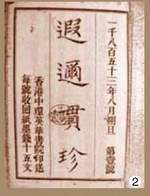 一千八百五十三年八月朔旦　第壹號
遐邇貫珍
香港中環英華書院印送
每號收回紙墨錢十五文
2